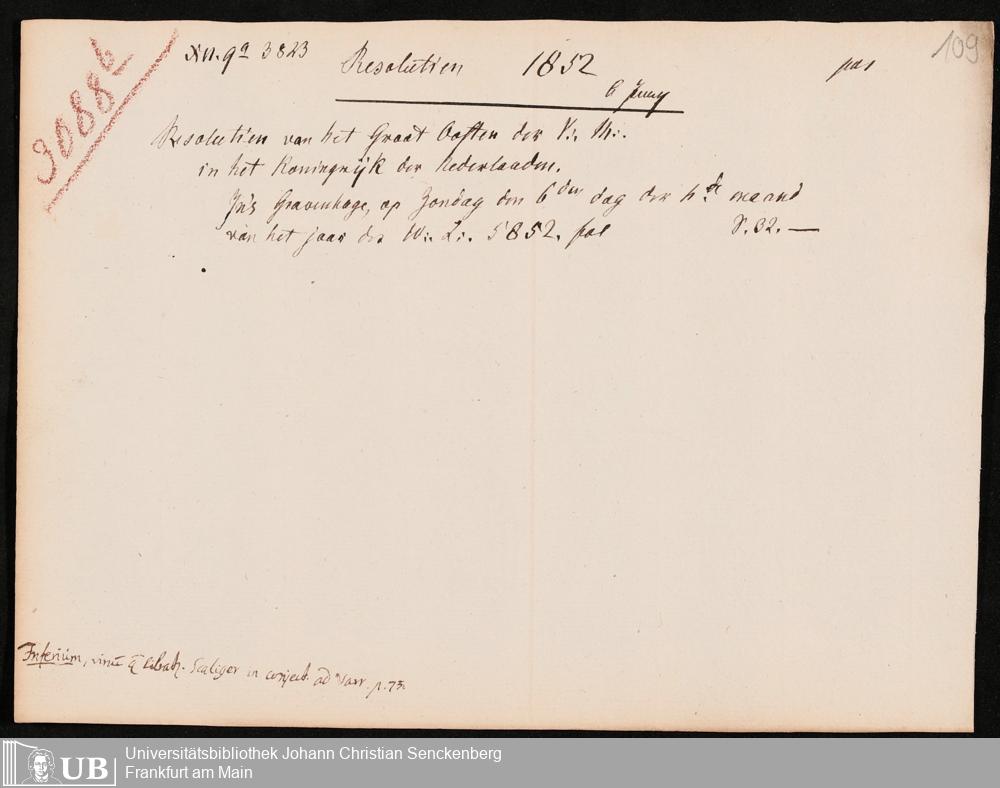 30886
xn. 9a 3823
Resolutien 1852
6 Juny
fol
109
Resolutien van het Groot Oosten der V∴ M∴
in het Koningrijk der Nederlanden.
In's Gravenhage, op Zondag den 6 den dag der 4.de maand
van het jaar des W∴ L∴ 5852. fol
S. 32. —
Inferium, vinū q̄ libatʒ. Scaliger in conject. ad Varr. p. 73.
UB
Universitätsbibliothek Johann Christian Senckenberg
Frankfurt am Main